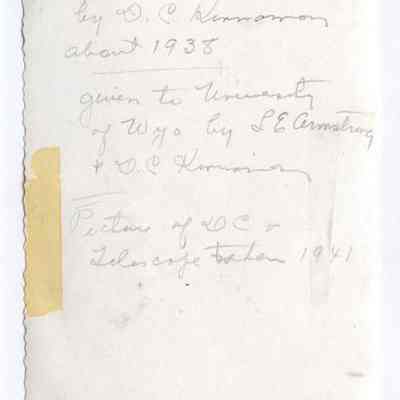 by D. C. Kinnaman
about 1938
given to University
of Wyo by L E Armstrong
+ D. C Kinnaman
Picture of D C +
Telescope taken 1941